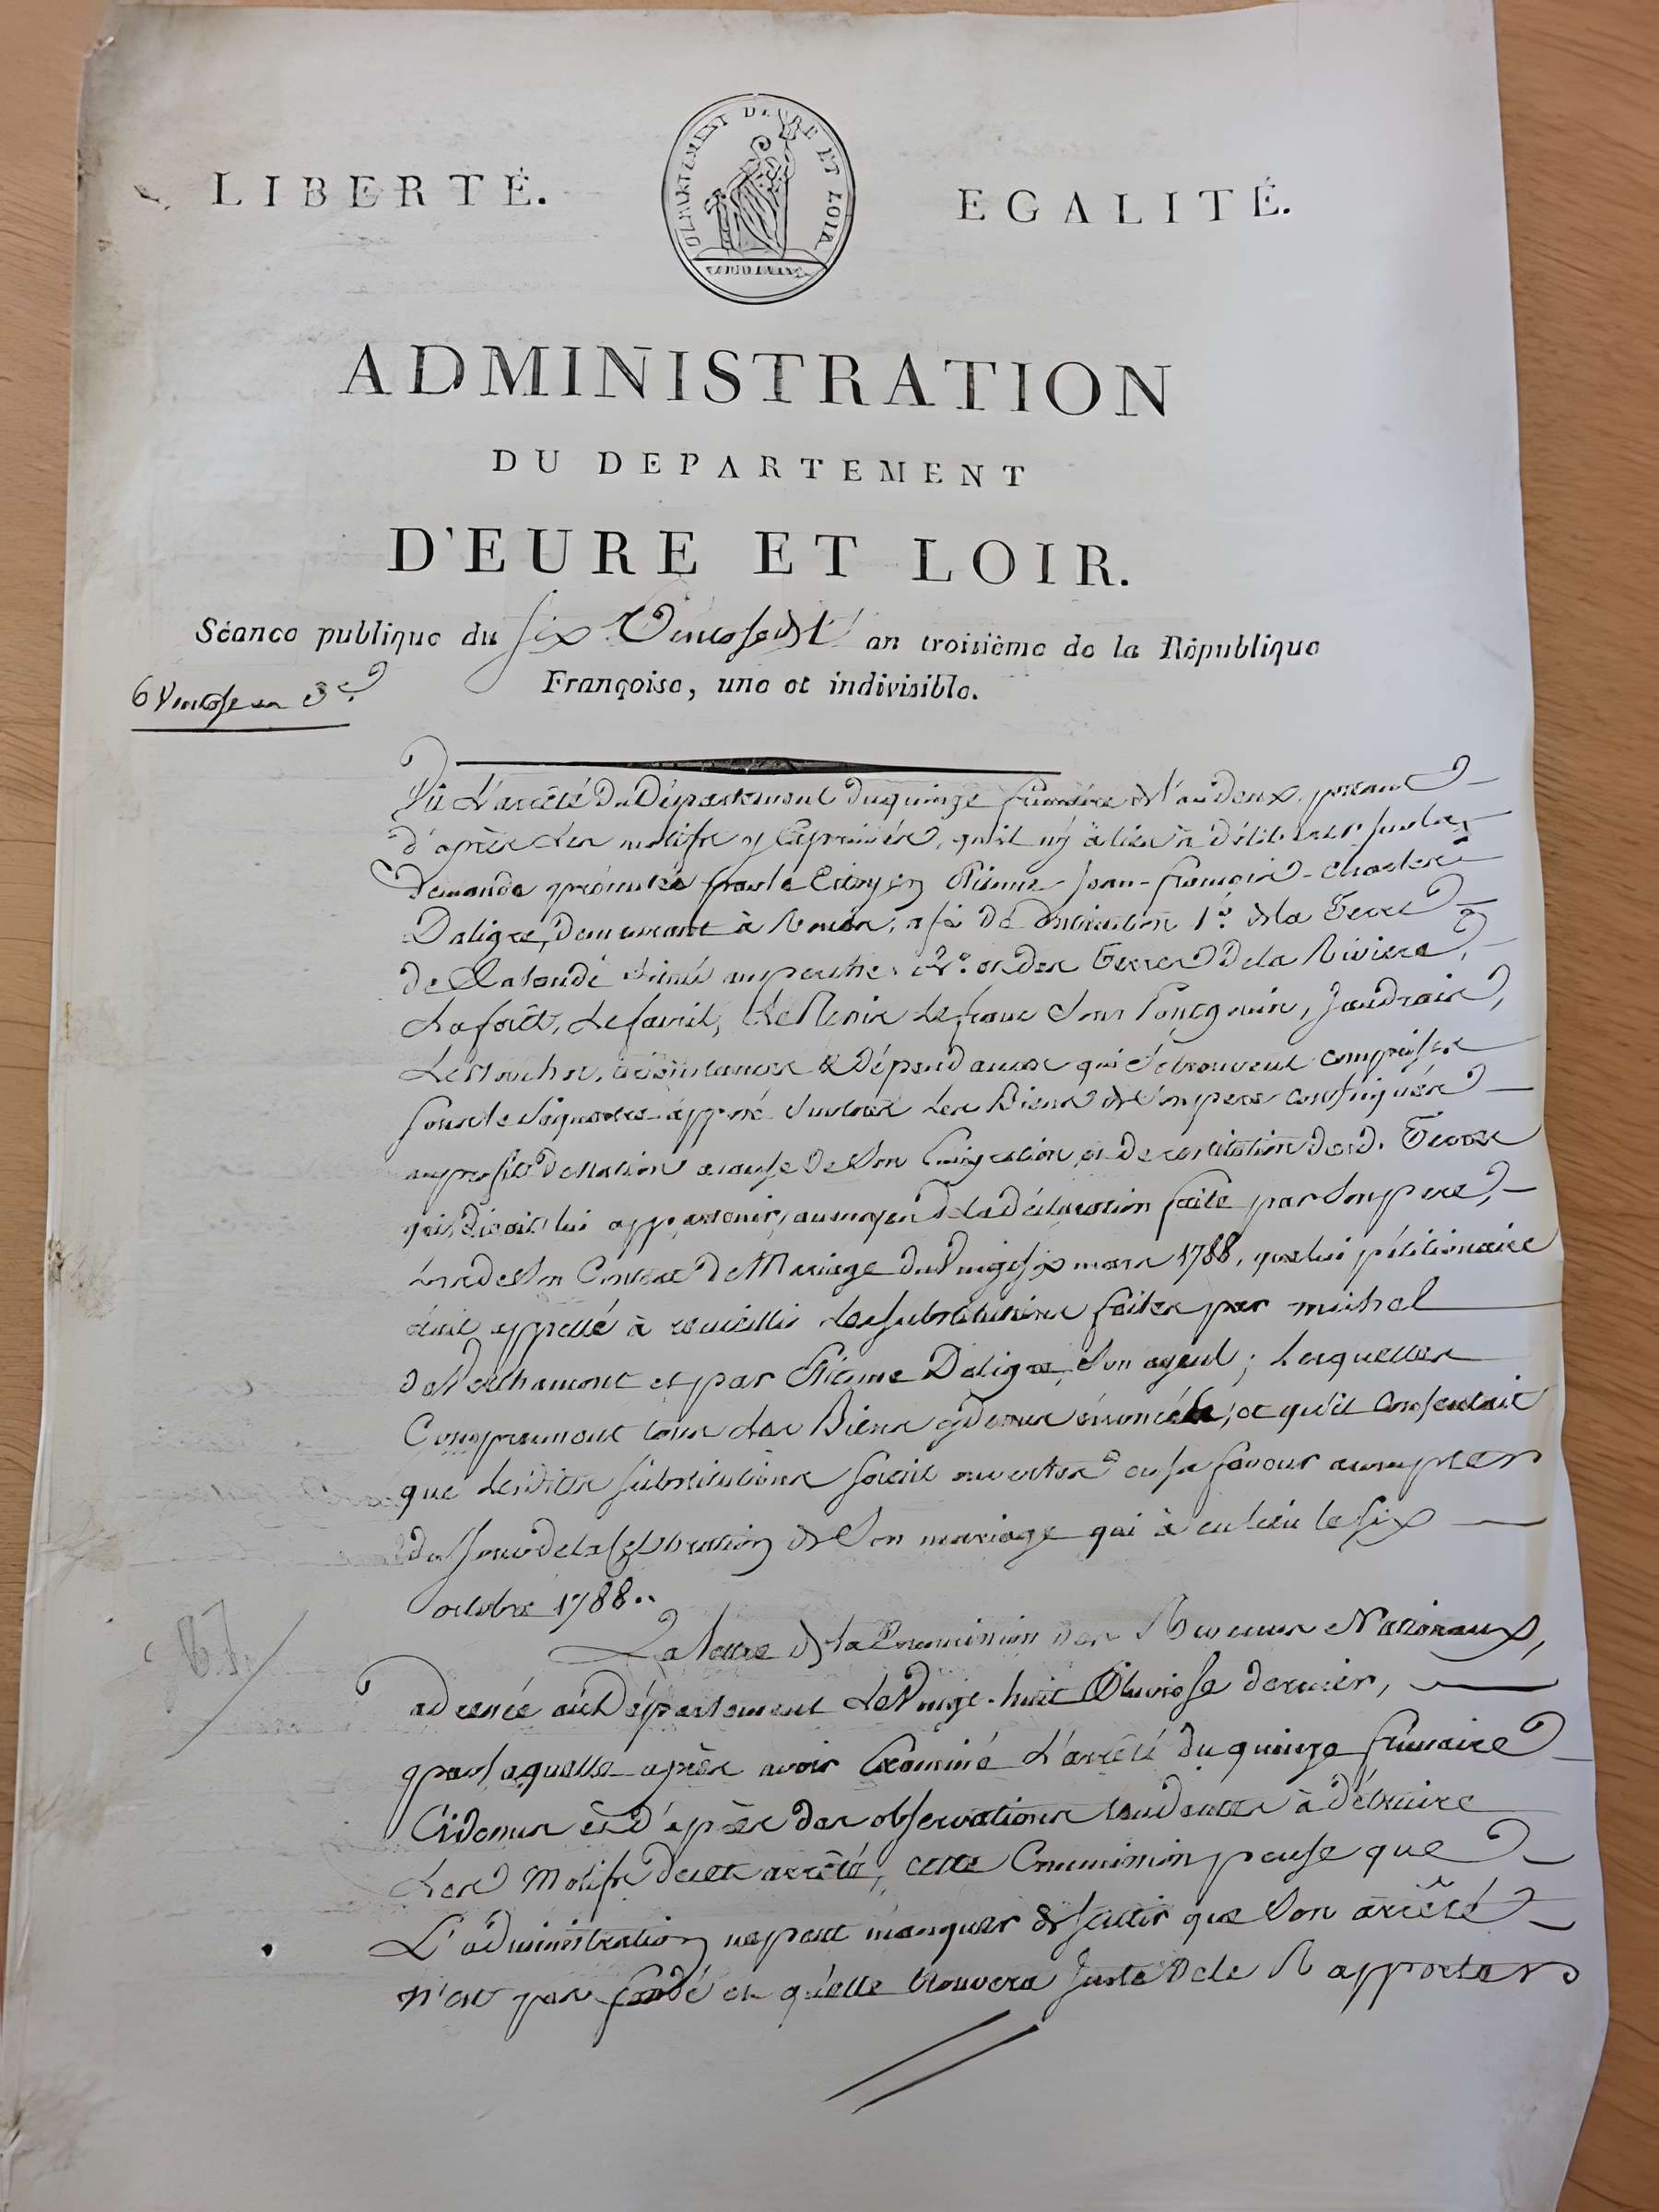 DEPARTEMENT D'EURE ET LOIR
LIBERTÉ.
EGALITÉ.
ADMINISTRATION
DU DEPARTEMENT
D'EURE ET LOIR.
Séance publique du six Ventose de l' an troisième de la République
Françoise, une et indivisible.
6 Ventose an 3e
Vû L'arrêté du Département du quinze frimaire de l'an deux, portant
d'après les motifs y Exprimés, qu'il n'y à lieu à délibérer sur la
Demande présentée par le Citoyen Etienne-Jean-françois-Charles
Daligre, demeurant à Rouen, afin de distraction 1° de la Terre
de Lalande située au perche, 2° et des Terres de la Riviere,
La forêt, Le favril, Le franc Jaudrais,
circonstances & Dépendances qui se trouvent comprises
sous le séquestre apposé sur tous les Biens de son pere confisqués
au profit de la Nation a cause de son Emigration, et de restitution desd. Terres
qu'il disait lui appartenir, au moyen de la déclaration faite par son pere,
Lors de son Contrat de Mariage du vingt six mars 1788, que lui pétitionnaire
était appellé à recueillir les substitutions faites par michel
de Verthamont et par Etienne Daligre, son ayeul; Lesquelles
Comprennent tous les Biens cydessus énoncés, et qu'il Consentait
que lesdites substitutions soient ouvertes en sa faveur acompter
du Jour de la Célébration de Son mariage qui à eu lieu le six
octobre 1788..
La lettre de la Commission des Revenus Nationaux,
adressée au Département Le Vingt-huit Pluviose dernier,
par laquelle après avoir Examiné L'arrêté du quinze frimaire
Cidessus et d'après des observations tendantes à détruire
Les Motifs de cet arrêté, cette Commission pense que
L'administration ne peut manquer de sentir que Son arrêté
n'est pas fondé et qu'elle trouvera Juste de le Rapporter